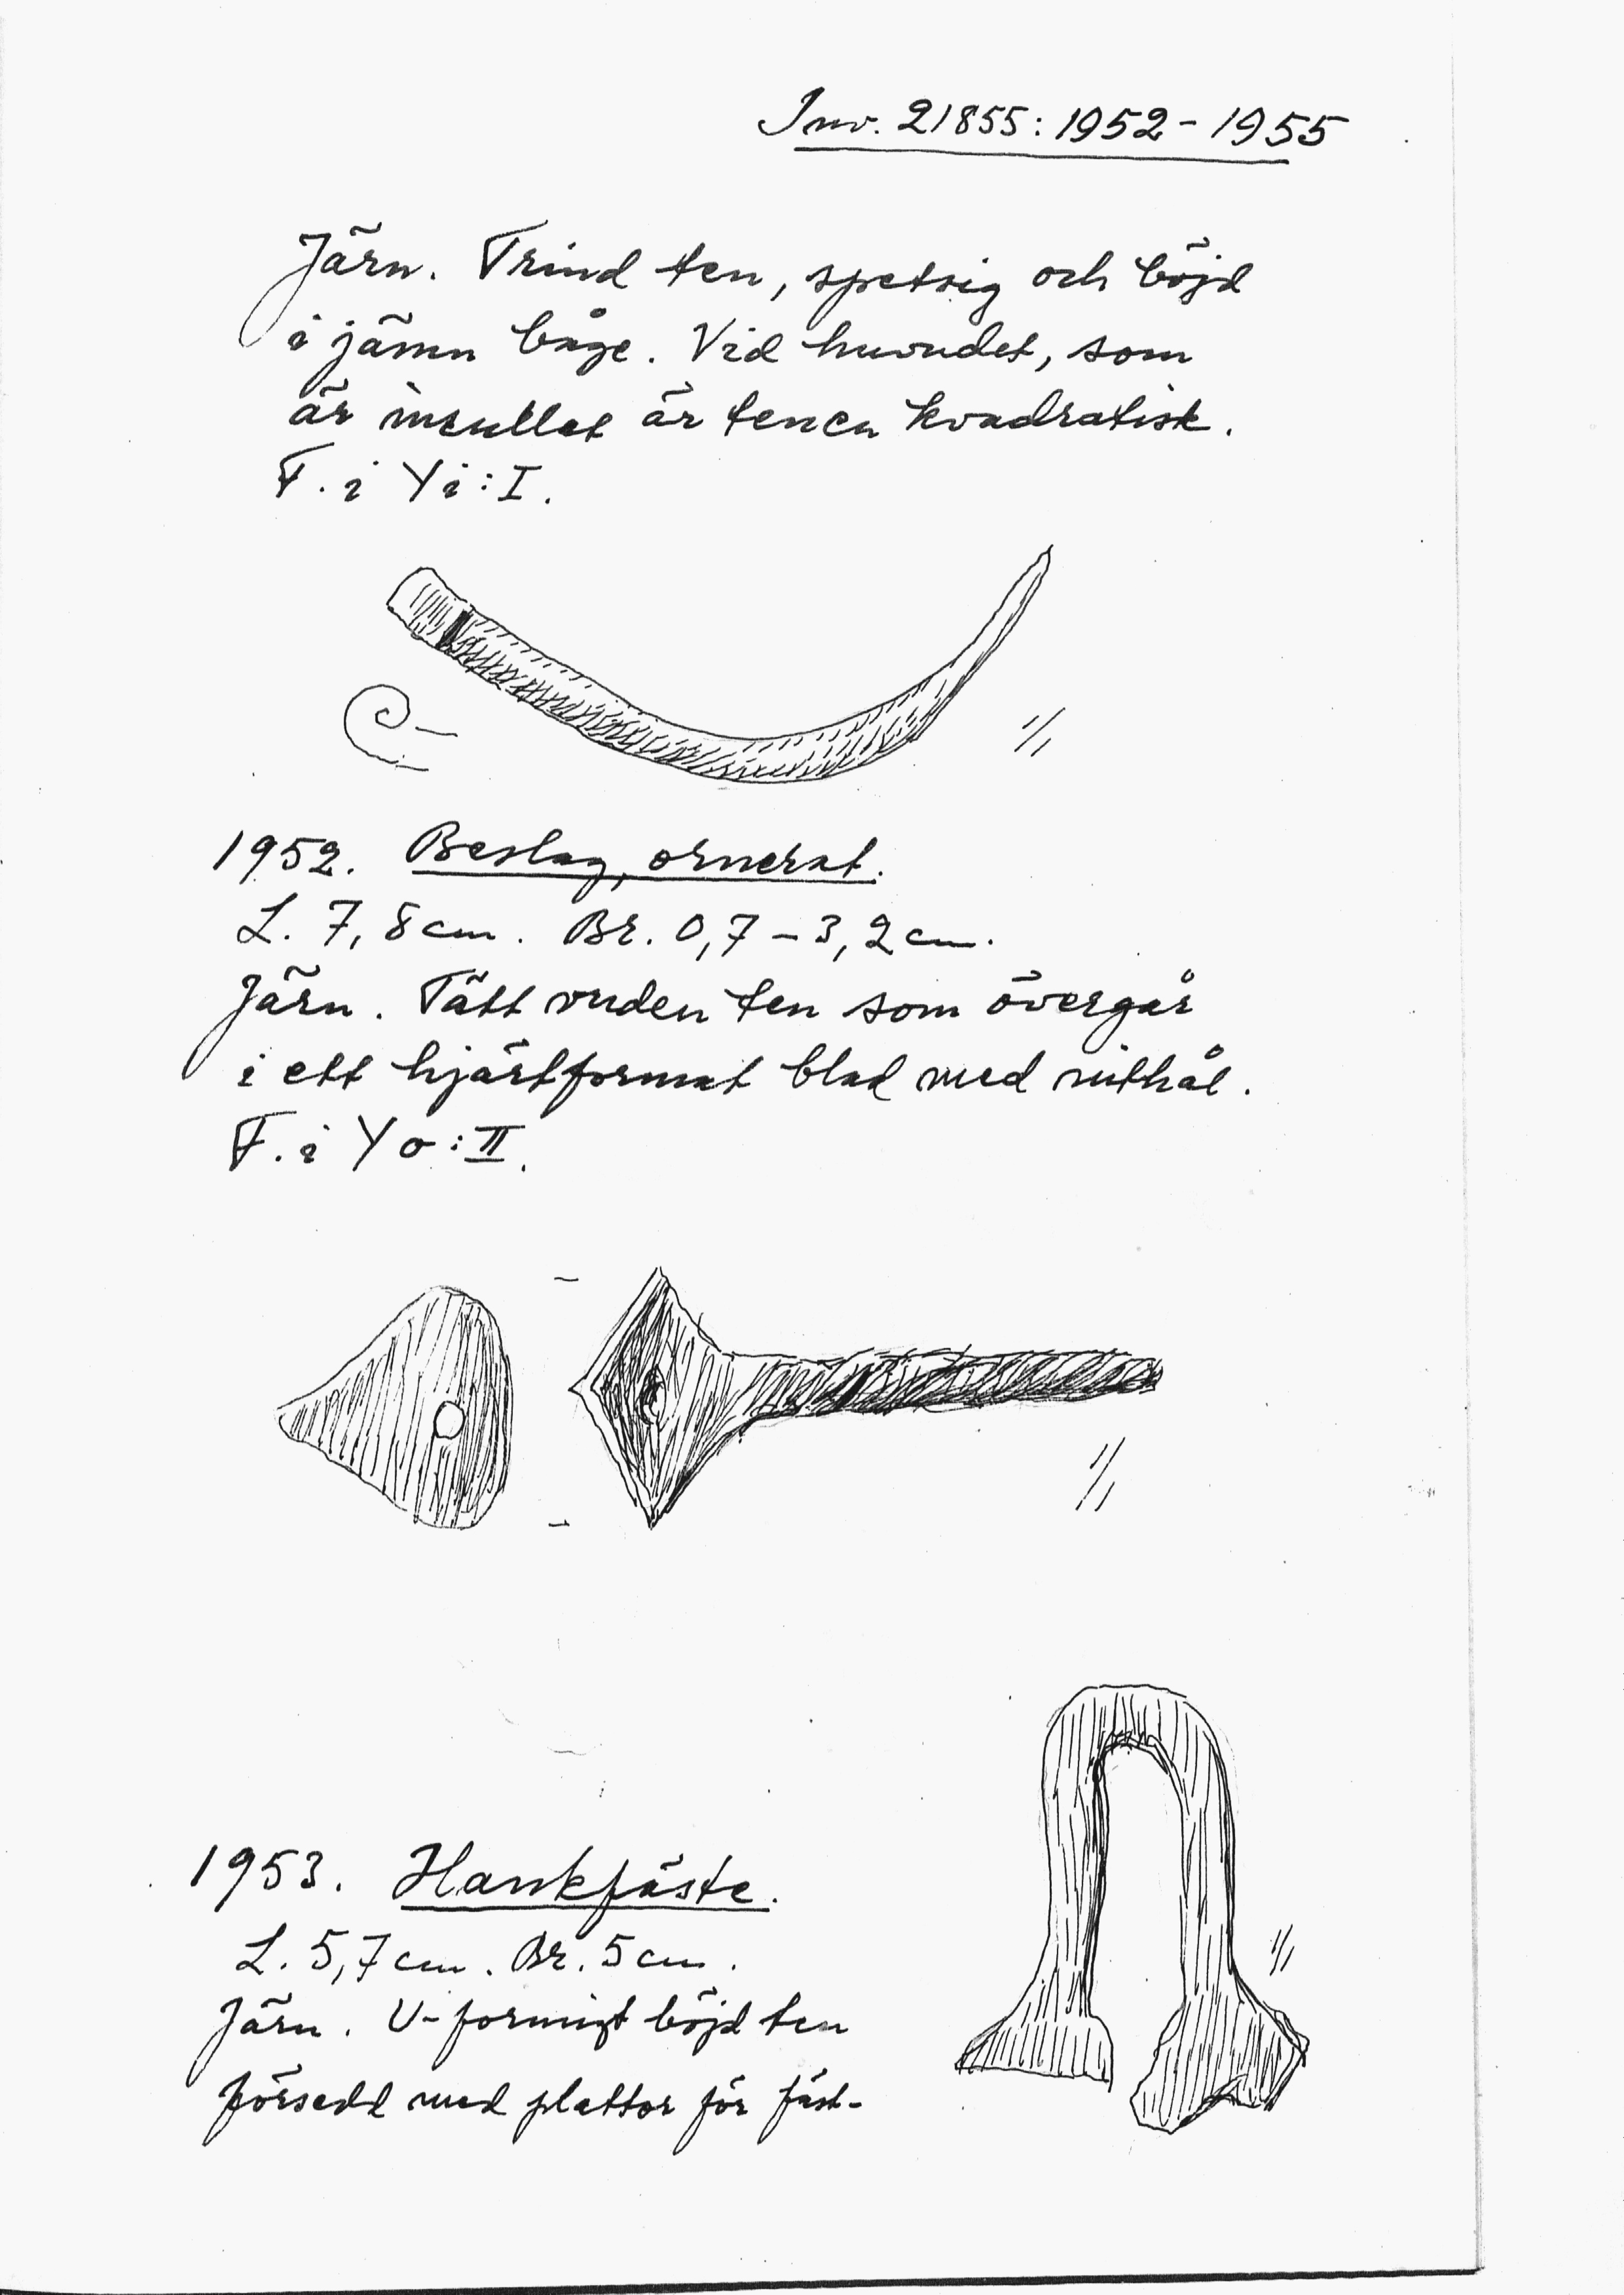 Inv. 21855:1952-1955
Järn. Trind ten, spetsig och böjd
i jämn båge. Vid huvudet, som
är inrullat är tenen kvadratisk.
F. i Yi:I.
1/1
1952. Beslag, ornerat.
L. 7,8 cm. Br. 0,7-3,2 cm.
Järn. Tätt vriden ten som övergår
i ett hjärtformat blad med nithål.
F. i Yo:II.
1/1
1953. Hankfäste.
L. 5,7 cm. Br. 5 cm.
1/1
Järn. U-formigt böjd ten
försedd med plattor för fäst-